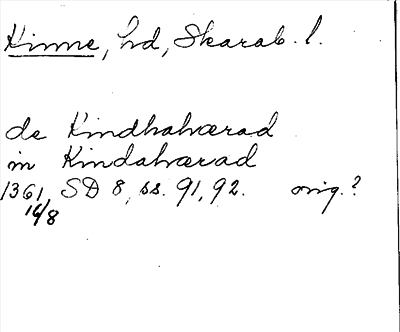 Kinne, hd, Skarab. l.
de Kindhahærad
in Kindahærad
1361 SD 8, ss. 91, 92. orig.?
16/8